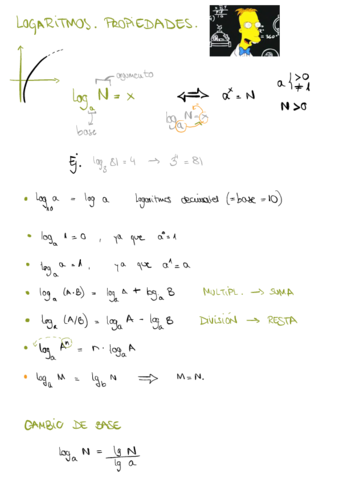 LOGARITMOS. PROPIEDADES.
argumento
logₐ N = x ⟺ aˣ = N a { >0 ≠1
N>0
base
logₐ N = x
Ej. log₃ 81 = 4 → 3⁴ = 81
• log₁₀ a = log a logaritmos decimales (=base=10)
• logₐ 1 = 0, ya que a⁰=1
• logₐ a = 1, ya que a¹=a
• logₐ (A·B) = logₐ A + logₐ B MULTIPL. → SUMA
• logₐ (A/B) = logₐ A - logₐ B DIVISIÓN → RESTA
• logₐ Aⁿ = n · logₐ A
• logₐ M = lg_b N ⟹ M=N.
CAMBIO DE BASE
logₐ N = lg N / lg a